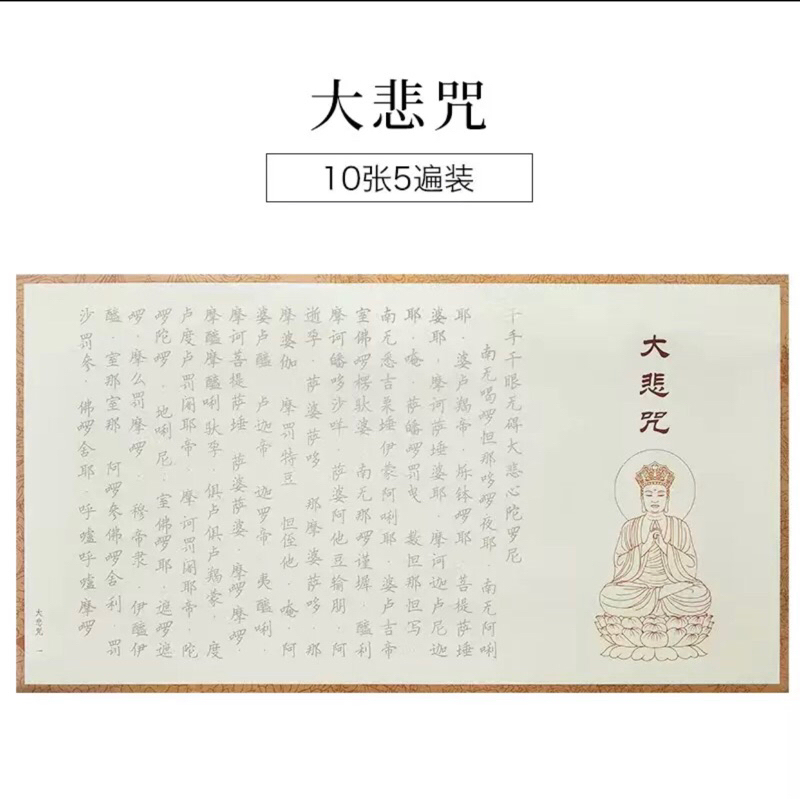 大悲咒
10张5遍装
大悲咒
千手千眼无碍大悲心陀罗尼
南无喝啰怛那哆啰夜耶·南无阿唎
耶·婆卢羯帝·烁钵啰耶·菩提萨埵
婆耶·摩诃萨埵婆耶·摩诃迦卢尼迦
耶·唵·萨皤啰罚曳·数怛那怛写·
南无悉吉栗埵伊蒙阿唎耶·婆卢吉帝
室佛啰楞驮婆 南无那啰谨墀·醯利
摩诃皤哆沙咩·萨婆阿他豆输朋·阿
逝孕·萨婆萨哆 那摩婆萨哆·那
摩婆伽 摩罚特豆 怛侄他·唵·阿
婆卢醯 卢迦帝 迦罗帝·夷醯唎·
摩诃菩提萨埵 萨婆萨婆·摩啰摩啰·
摩醯摩醯唎驮孕·俱卢俱卢羯蒙·度
卢度卢罚阇耶帝·摩诃罚阇耶帝·陀
啰陀啰·地唎尼·室佛啰耶·遮啰遮
啰·摩么罚摩啰 穆帝隶·伊醯伊
醯·室那室那 阿啰参佛啰舍利·罚
沙罚参·佛啰舍耶·呼嚧呼嚧摩啰
大悲咒 一